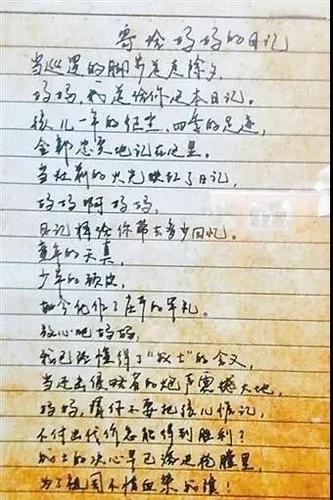 寄给妈妈的日记
当巡逻的脚步走走除夕,
妈妈,我送给你这本日记。
孩儿一年的征尘、四季的足迹,
全部忠实地记在这里。
当灶前的火光映红了日记,
妈妈啊妈妈,
日记将给你带去多少回忆。
童年的天真,
少年的顽皮,
如今化作了庄严的军礼。
放心吧妈妈,
我已经懂得了“战士”的含义,
当还击侵略者的炮声震撼大地,
妈妈,请你不要把孩儿惦记,
不付出代价怎能得到胜利?
战士的决心早已溶进枪膛里,
为了祖国不惜血染战旗!